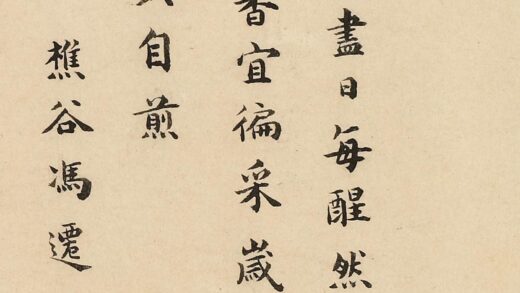 盡日每醒然
香宜徧采歲
自煎
樵谷馮遷